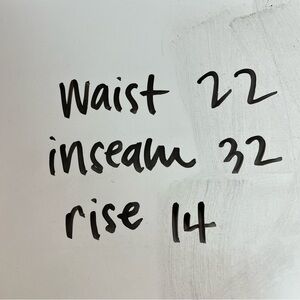 waist 22
inseam 32
rise 14